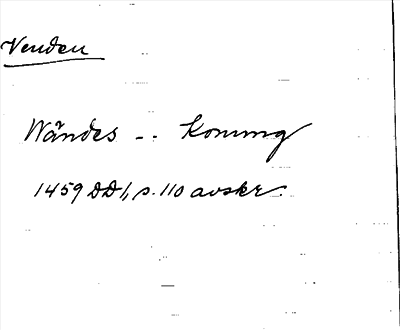 Venden
Wändes -- Konung
1459 DD 1, s. 110 avskr.